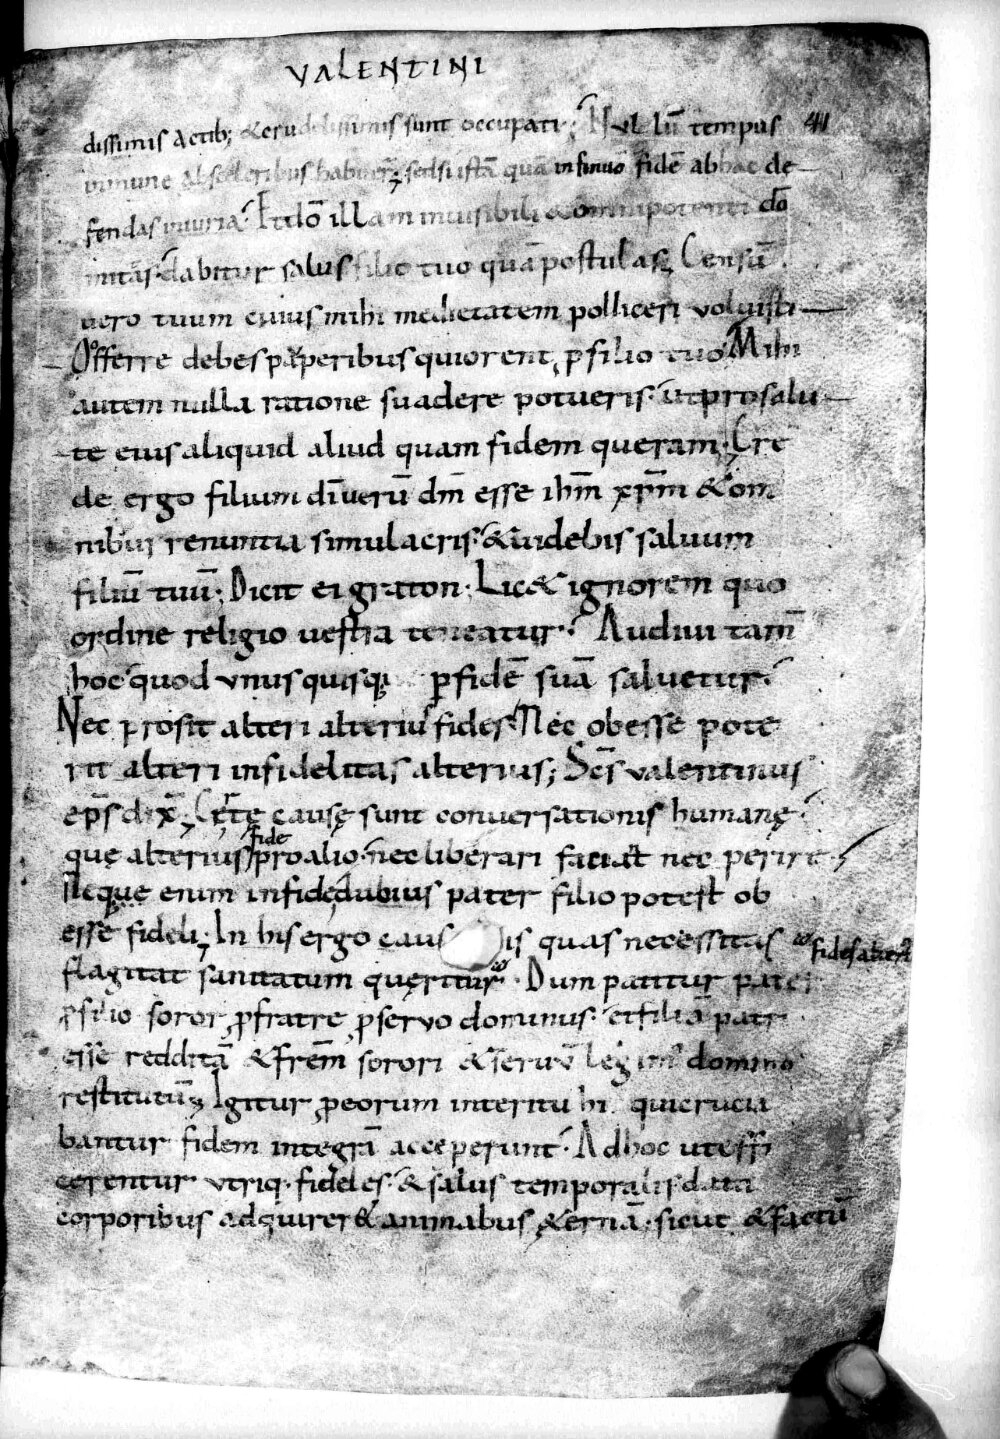 VALENTINI
dissimis actib; & crudelissimis sunt occupati; Nullū tempus 411
inmune ab sceleribus habuer̄; sed si istā quā insinuo fidē ab hac de
fendas iniuria. Et dō illam inuisibili & omnipotenti dō
mittas. dabitur salus filio tuo quā postulas; Censū
uero tuum cuius mihi medietatem polliceri voluisti
Offerre debes pauperibus qui orent, ꝑ filio tuo Mihi
autem nulla ratione suadere potueris. ut pro salu
te eius aliquid aliud quam fidem queram; Cre
de ergo filium dī verū dm̄ esse ihm̄ xp̄m & om
nibus renuntia simulacris. & uidebis saluum
filiū tuū; Dicit ei graton; Lic& ignorem quo
ordine religio uestra teneatur. Audiui tam̄
hoc quod vnusquisq; ꝑ fidē suā saluetur.
Nec prosit alteri alterius fides. Nec obesse pote
rit alteri infidelitas alterius; Scs̄ valentinus
ep̄s dix̄; Certe causę sunt conuersationis humanę.
quę alterius fide pro alio. nec liberari faciat nec perire.
Neque enim in fide dubius pater filio potest ob
esse fideli; In his ergo caus is quas necessitas fides alteri
flagitat sanitatum quęritur. Dum patitur pater
ꝓ filio soror ꝓ fratre ꝓ seruo dominus. et filiā patri
esse redditā & fr̄em sorori & seruū legim' domino
restitutū; Igitur ꝓ eorum interitu hi qui crucia
bantur fidem integrā acceperunt. Ad hoc ut effi
cerentur vtriq; fideles. & salus temporalis data
corporibus adquirer& animabus &ernā. sicut & factū